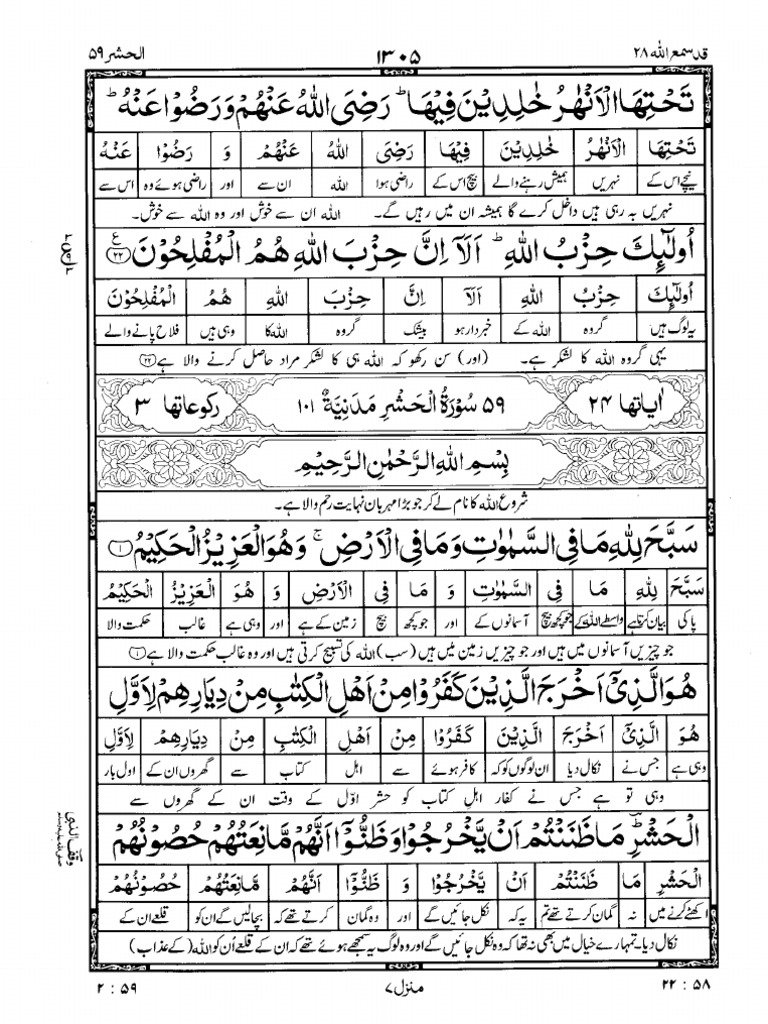 قد سمع الله ٢٨ ١٣٠٥ الحشر ٥٩
تَحْتِهَا الْاَنْهٰرُ خٰلِدِيْنَ فِيْهَا ؕ رَضِيَ اللهُ عَنْهُمْ وَرَضُوْا عَنْهُ ؕ
تَحْتِهَا الْاَنْهٰرُ خٰلِدِيْنَ فِيْهَا رَضِيَ اللهُ عَنْهُمْ وَ رَضُوْا عَنْهُ
نیچے اس کے نہریں ہمیش رہنے والے بیچ اس کے راضی ہوا اللہ ان سے اور راضی ہوئے وہ اس سے
نہریں بہ رہی ہیں داخل کرے گا ہمیشہ ان میں رہیں گے۔ اللہ ان سے خوش اور وہ اللہ سے خوش۔
اُولٰٓئِكَ حِزْبُ اللهِ ؕ اَلَآ اِنَّ حِزْبَ اللهِ هُمُ الْمُفْلِحُوْنَ ع ٢٢
اُولٰٓئِكَ حِزْبُ اللهِ اَلَآ اِنَّ حِزْبَ اللهِ هُمُ الْمُفْلِحُوْنَ
یہ لوگ ہیں گروہ اللہ کے خبردار ہو بیشک گروہ اللہ کا وہی ہیں فلاح پانے والے
یہی گروہ اللہ کا لشکر ہے۔ (اور) سن رکھو کہ اللہ ہی کا لشکر مراد حاصل کرنے والا ہے ٢٢
اٰیاتها ٢٤ ٥٩ سُوْرَةُ الْحَشْرِ مَدَنِيَّةٌ ١٠١ رکوعاتها ٣
بِسْمِ اللهِ الرَّحْمٰنِ الرَّحِيْمِ
شروع اللہ کا نام لے کر جو بڑا مہربان نہایت رحم والا ہے۔
سَبَّحَ لِلّٰهِ مَا فِي السَّمٰوٰتِ وَمَا فِي الْاَرْضِ ۚ وَهُوَ الْعَزِيْزُ الْحَكِيْمُ ١
سَبَّحَ لِلّٰهِ مَا فِي السَّمٰوٰتِ وَ مَا فِي الْاَرْضِ وَ هُوَ الْعَزِيْزُ الْحَكِيْمُ
پاکی بیان کرتا ہے واسطے اللہ کے جو کچھ بیچ آسمانوں کے اور جو کچھ بیچ زمین کے ہے اور وہی ہے غالب حکمت والا
جو چیزیں آسمانوں میں ہیں اور جو چیزیں زمین میں ہیں (سب) اللہ کی تسبیح کرتی ہیں اور وہ غالب حکمت والا ہے ١
هُوَ الَّذِيْٓ اَخْرَجَ الَّذِيْنَ كَفَرُوْا مِنْ اَهْلِ الْكِتٰبِ مِنْ دِيَارِهِمْ لِاَوَّلِ
هُوَ الَّذِيْٓ اَخْرَجَ الَّذِيْنَ كَفَرُوْا مِنْ اَهْلِ الْكِتٰبِ مِنْ دِيَارِهِمْ لِاَوَّلِ
وہی ہے جس نے نکال دیا ان لوگوں کو کہ کافر ہوئے سے اہل کتاب سے گھروں ان کے اول بار
وہی تو ہے جس نے کفار اہل کتاب کو حشر اوّل کے وقت ان کے گھروں سے
الْحَشْرِ ؕ مَا ظَنَنْتُمْ اَنْ يَّخْرُجُوْا وَظَنُّوْٓا اَنَّهُمْ مَّانِعَتُهُمْ حُصُوْنُهُمْ
الْحَشْرِ مَا ظَنَنْتُمْ اَنْ يَّخْرُجُوْا وَ ظَنُّوْٓا اَنَّهُمْ مَّانِعَتُهُمْ حُصُوْنُهُمْ
اکٹھے کرنے میں نہ گمان کرتے تھے تم یہ کہ نکل جائیں گے اور وہ گمان کرتے تھے کہ بچالیں گے ان کو قلعے ان کے
نکال دیا۔ تمہارے خیال میں بھی نہ تھا کہ وہ نکل جائیں گے اور وہ لوگ یہ سمجھے ہوئے تھے کہ ان کے قلعے اُن کو اللہ (کے عذاب)
وقف النبی صلی الله علیه وسلم
٢٢ : ٥٨ منزل ٧ ٢ : ٥٩